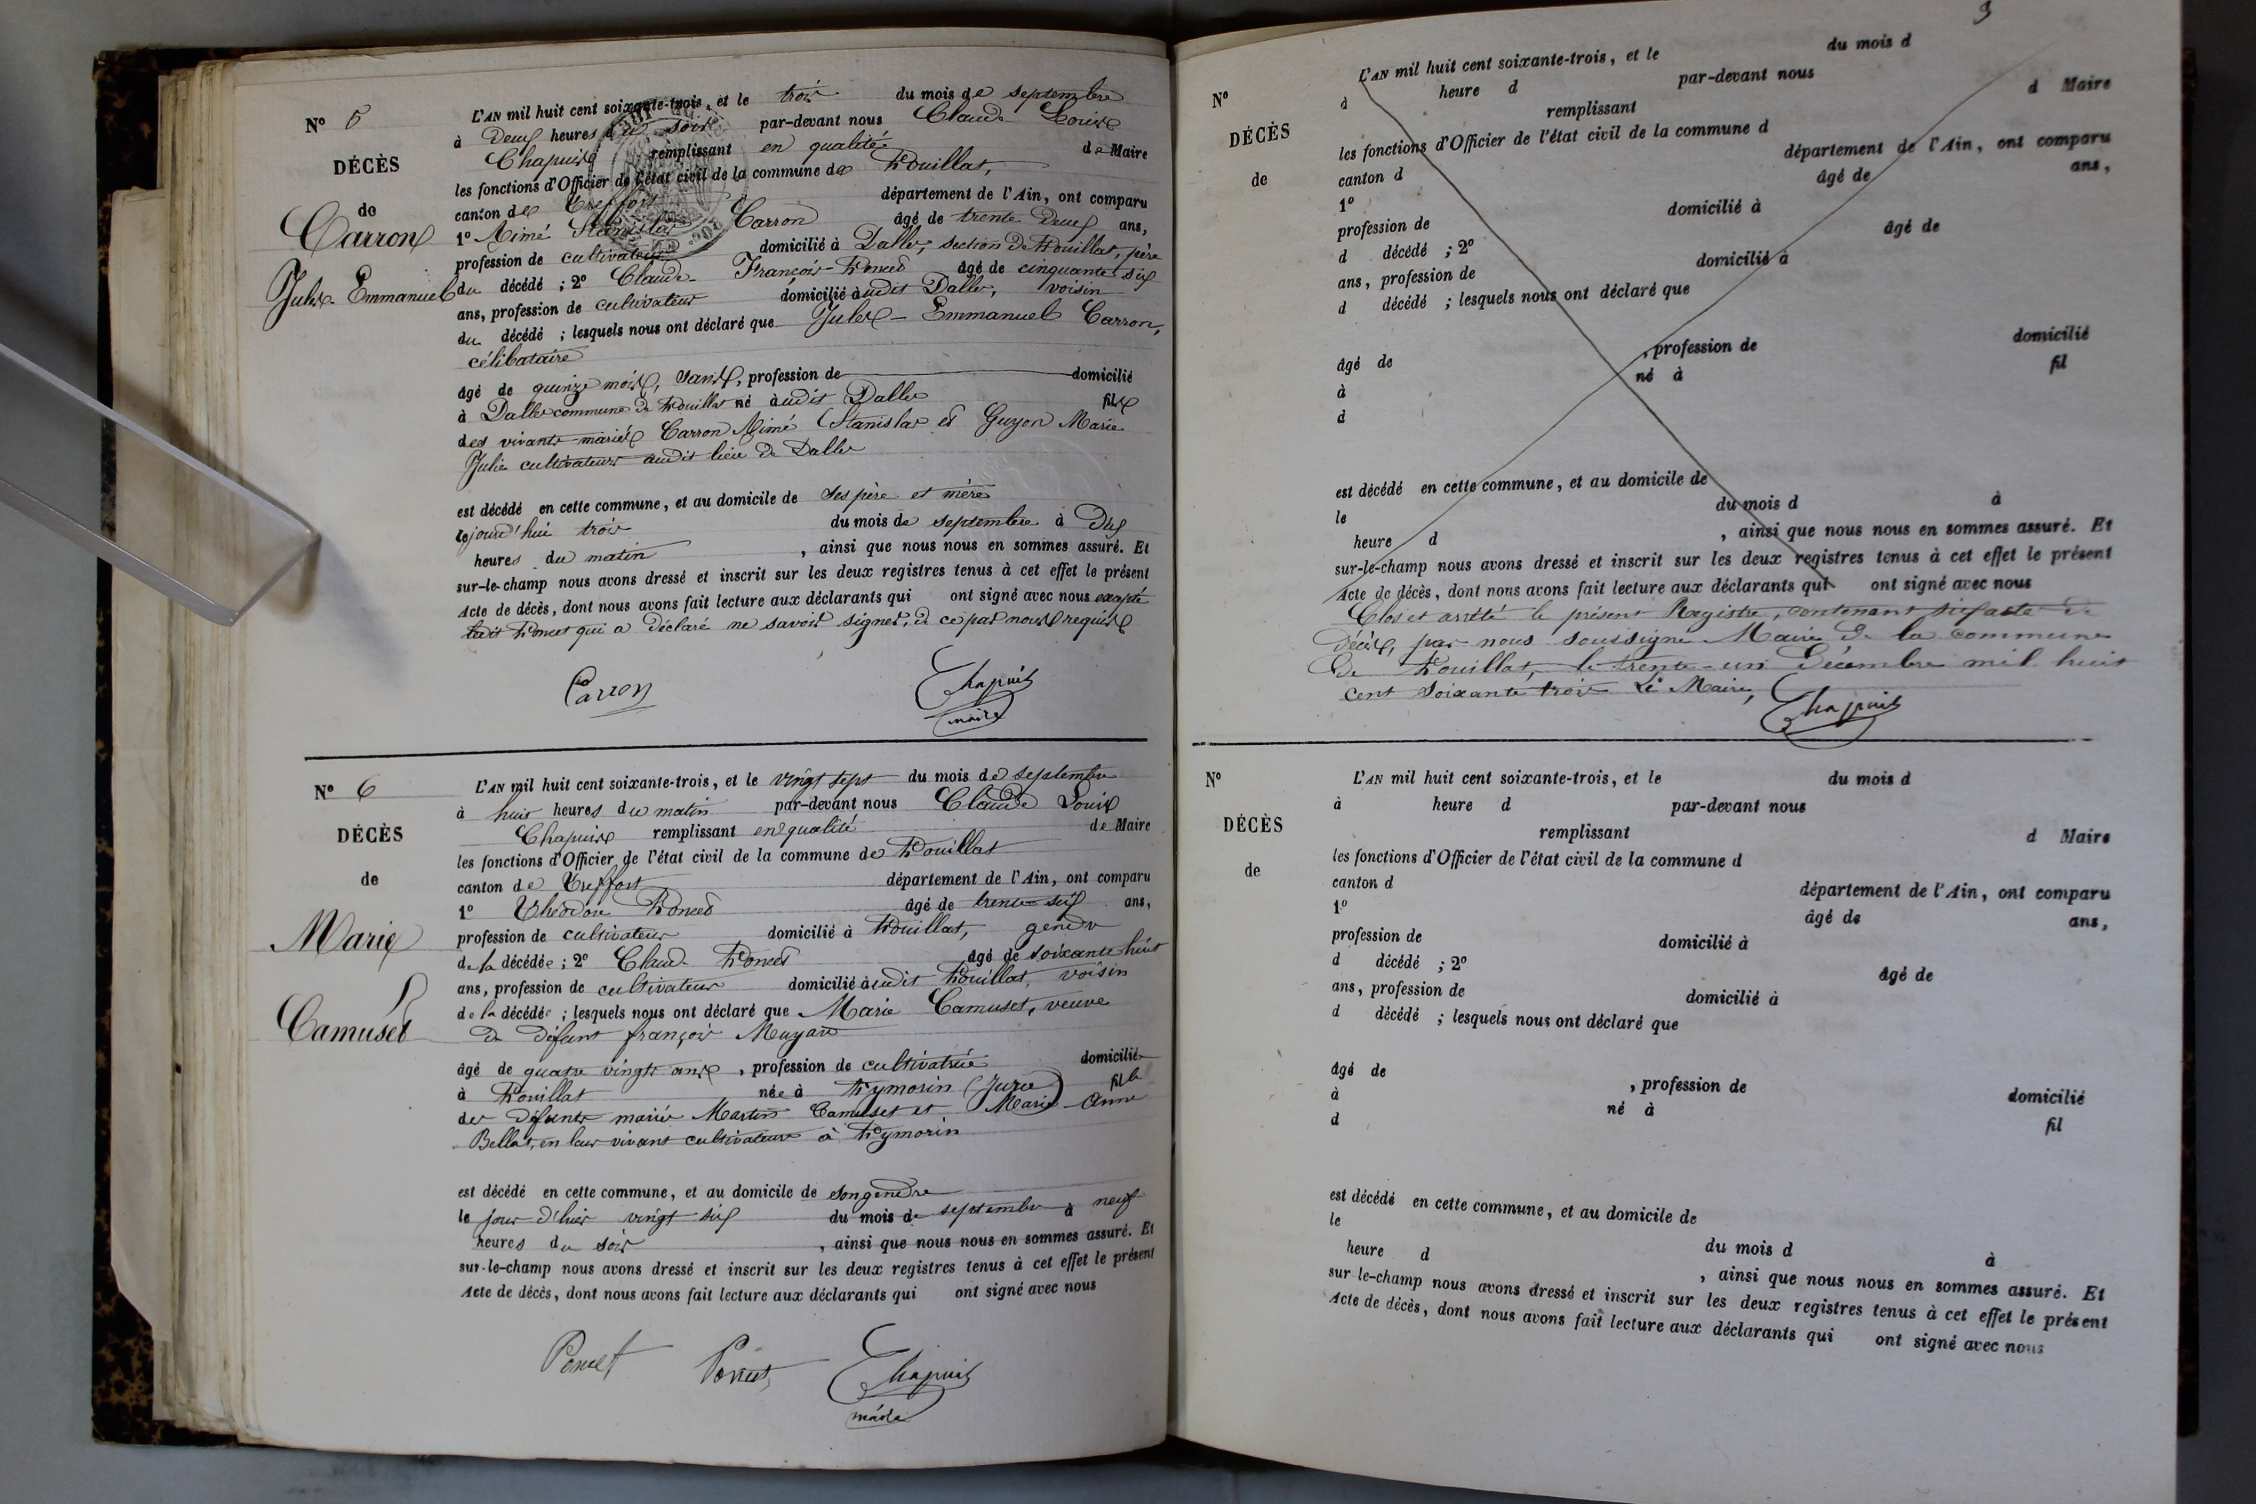 N° 5
DÉCÈS
de
Carron
Jules Emmanuel
L'AN mil huit cent soixante-trois, et le trois du mois de septembre
à Deux heures du soir par-devant nous Claude Louis
Chapuis remplissant en qualité de Maire
les fonctions d'Officier de l'état civil de la commune de Pouillat,
canton de Treffort département de l'Ain, ont comparu
1° Aimé Stanislas Carron âgé de trente Deux ans,
profession de cultivateur domicilié à Dalles, section de Pouillat, père
du décédé ; 2° Claude François Poncet âgé de cinquante six
ans, profession de cultivateur domicilié audit Dalles, voisin
du décédé ; lesquels nous ont déclaré que Jules Emmanuel Carron,
célibataire
âgé de quinze mois, sans, profession de domicilié
à Dalles commune de Pouillat né audit Dalles fils
des vivants mariés Carron Aimé Stanislas et Guyon Marie
Julie cultivateurs audit lieu de Dalles
est décédé en cette commune, et au domicile de ses père et mère
le jourd'hui trois du mois de septembre à Dix
heures du matin , ainsi que nous nous en sommes assuré. Et
sur-le-champ nous avons dressé et inscrit sur les deux registres tenus à cet effet le présent
Acte de décès, dont nous avons fait lecture aux déclarants qui ont signé avec nous excepté
ledit Poncet qui a déclaré ne savoir signer, de ce par nous requis
Carron Chapuis
maire
N° 6
DÉCÈS
de
Marie
Camuset
L'AN mil huit cent soixante-trois, et le vingt sept du mois de septembre
à huit heures du matin par-devant nous Claude Louis
Chapuis remplissant en qualité de Maire
les fonctions d'Officier de l'état civil de la commune de Pouillat
canton de Treffort département de l'Ain, ont comparu
1° Théodore Poncet âgé de trente six ans,
profession de cultivateur domicilié à Pouillat, gendre
de la décédée ; 2° Claude Poncet âgé de soixante huit
ans, profession de cultivateur domicilié audit Pouillat, voisin
de la décédée ; lesquels nous ont déclaré que Marie Camuset, veuve
de défunt françois Mugare
âgé de quatre vingts ans , profession de cultivatrice domicilié
à Pouillat née à Pymorin (Jura) fille
des défunts mariés Martin Camuset et Marie Anne
Bellat, en leur vivant cultivateurs à Pymorin
est décédé en cette commune, et au domicile de son gendre
le jour d'hier vingt six du mois de septembre à neuf
heures du soir , ainsi que nous nous en sommes assuré. Et
sur-le-champ nous avons dressé et inscrit sur les deux registres tenus à cet effet le présent
Acte de décès, dont nous avons fait lecture aux déclarants qui ont signé avec nous
Poncet Poncet Chapuis
maire
9
N°
DÉCÈS
de
L'AN mil huit cent soixante-trois, et le du mois d
à heure d par-devant nous
remplissant d Maire
les fonctions d'Officier de l'état civil de la commune d
canton d département de l'Ain, ont comparu
1° âgé de ans,
profession de domicilié à
d décédé ; 2° âgé de
ans, profession de domicilié à
d décédé ; lesquels nous ont déclaré que
âgé de , profession de domicilié
à né à fil
d
est décédé en cette commune, et au domicile de
le du mois d à
heure d , ainsi que nous nous en sommes assuré. Et
sur-le-champ nous avons dressé et inscrit sur les deux registres tenus à cet effet le présent
Acte de décès, dont nous avons fait lecture aux déclarants qui ont signé avec nous
Clos et arrêté le présent Registre, contenant six actes de
Décès, par nous soussigné Maire de la commune
de Pouillat, le trente-un Décembre mil huit
cent soixante trois Le Maire, Chapuis
N°
DÉCÈS
de
L'AN mil huit cent soixante-trois, et le du mois d
à heure d par-devant nous
remplissant d Maire
les fonctions d'Officier de l'état civil de la commune d
canton d département de l'Ain, ont comparu
1° âgé de ans,
profession de domicilié à
d décédé ; 2° âgé de
ans, profession de domicilié à
d décédé ; lesquels nous ont déclaré que
âgé de , profession de domicilié
à né à fil
d
est décédé en cette commune, et au domicile de
le du mois d à
heure d , ainsi que nous nous en sommes assuré. Et
sur-le-champ nous avons dressé et inscrit sur les deux registres tenus à cet effet le présent
Acte de décès, dont nous avons fait lecture aux déclarants qui ont signé avec nous